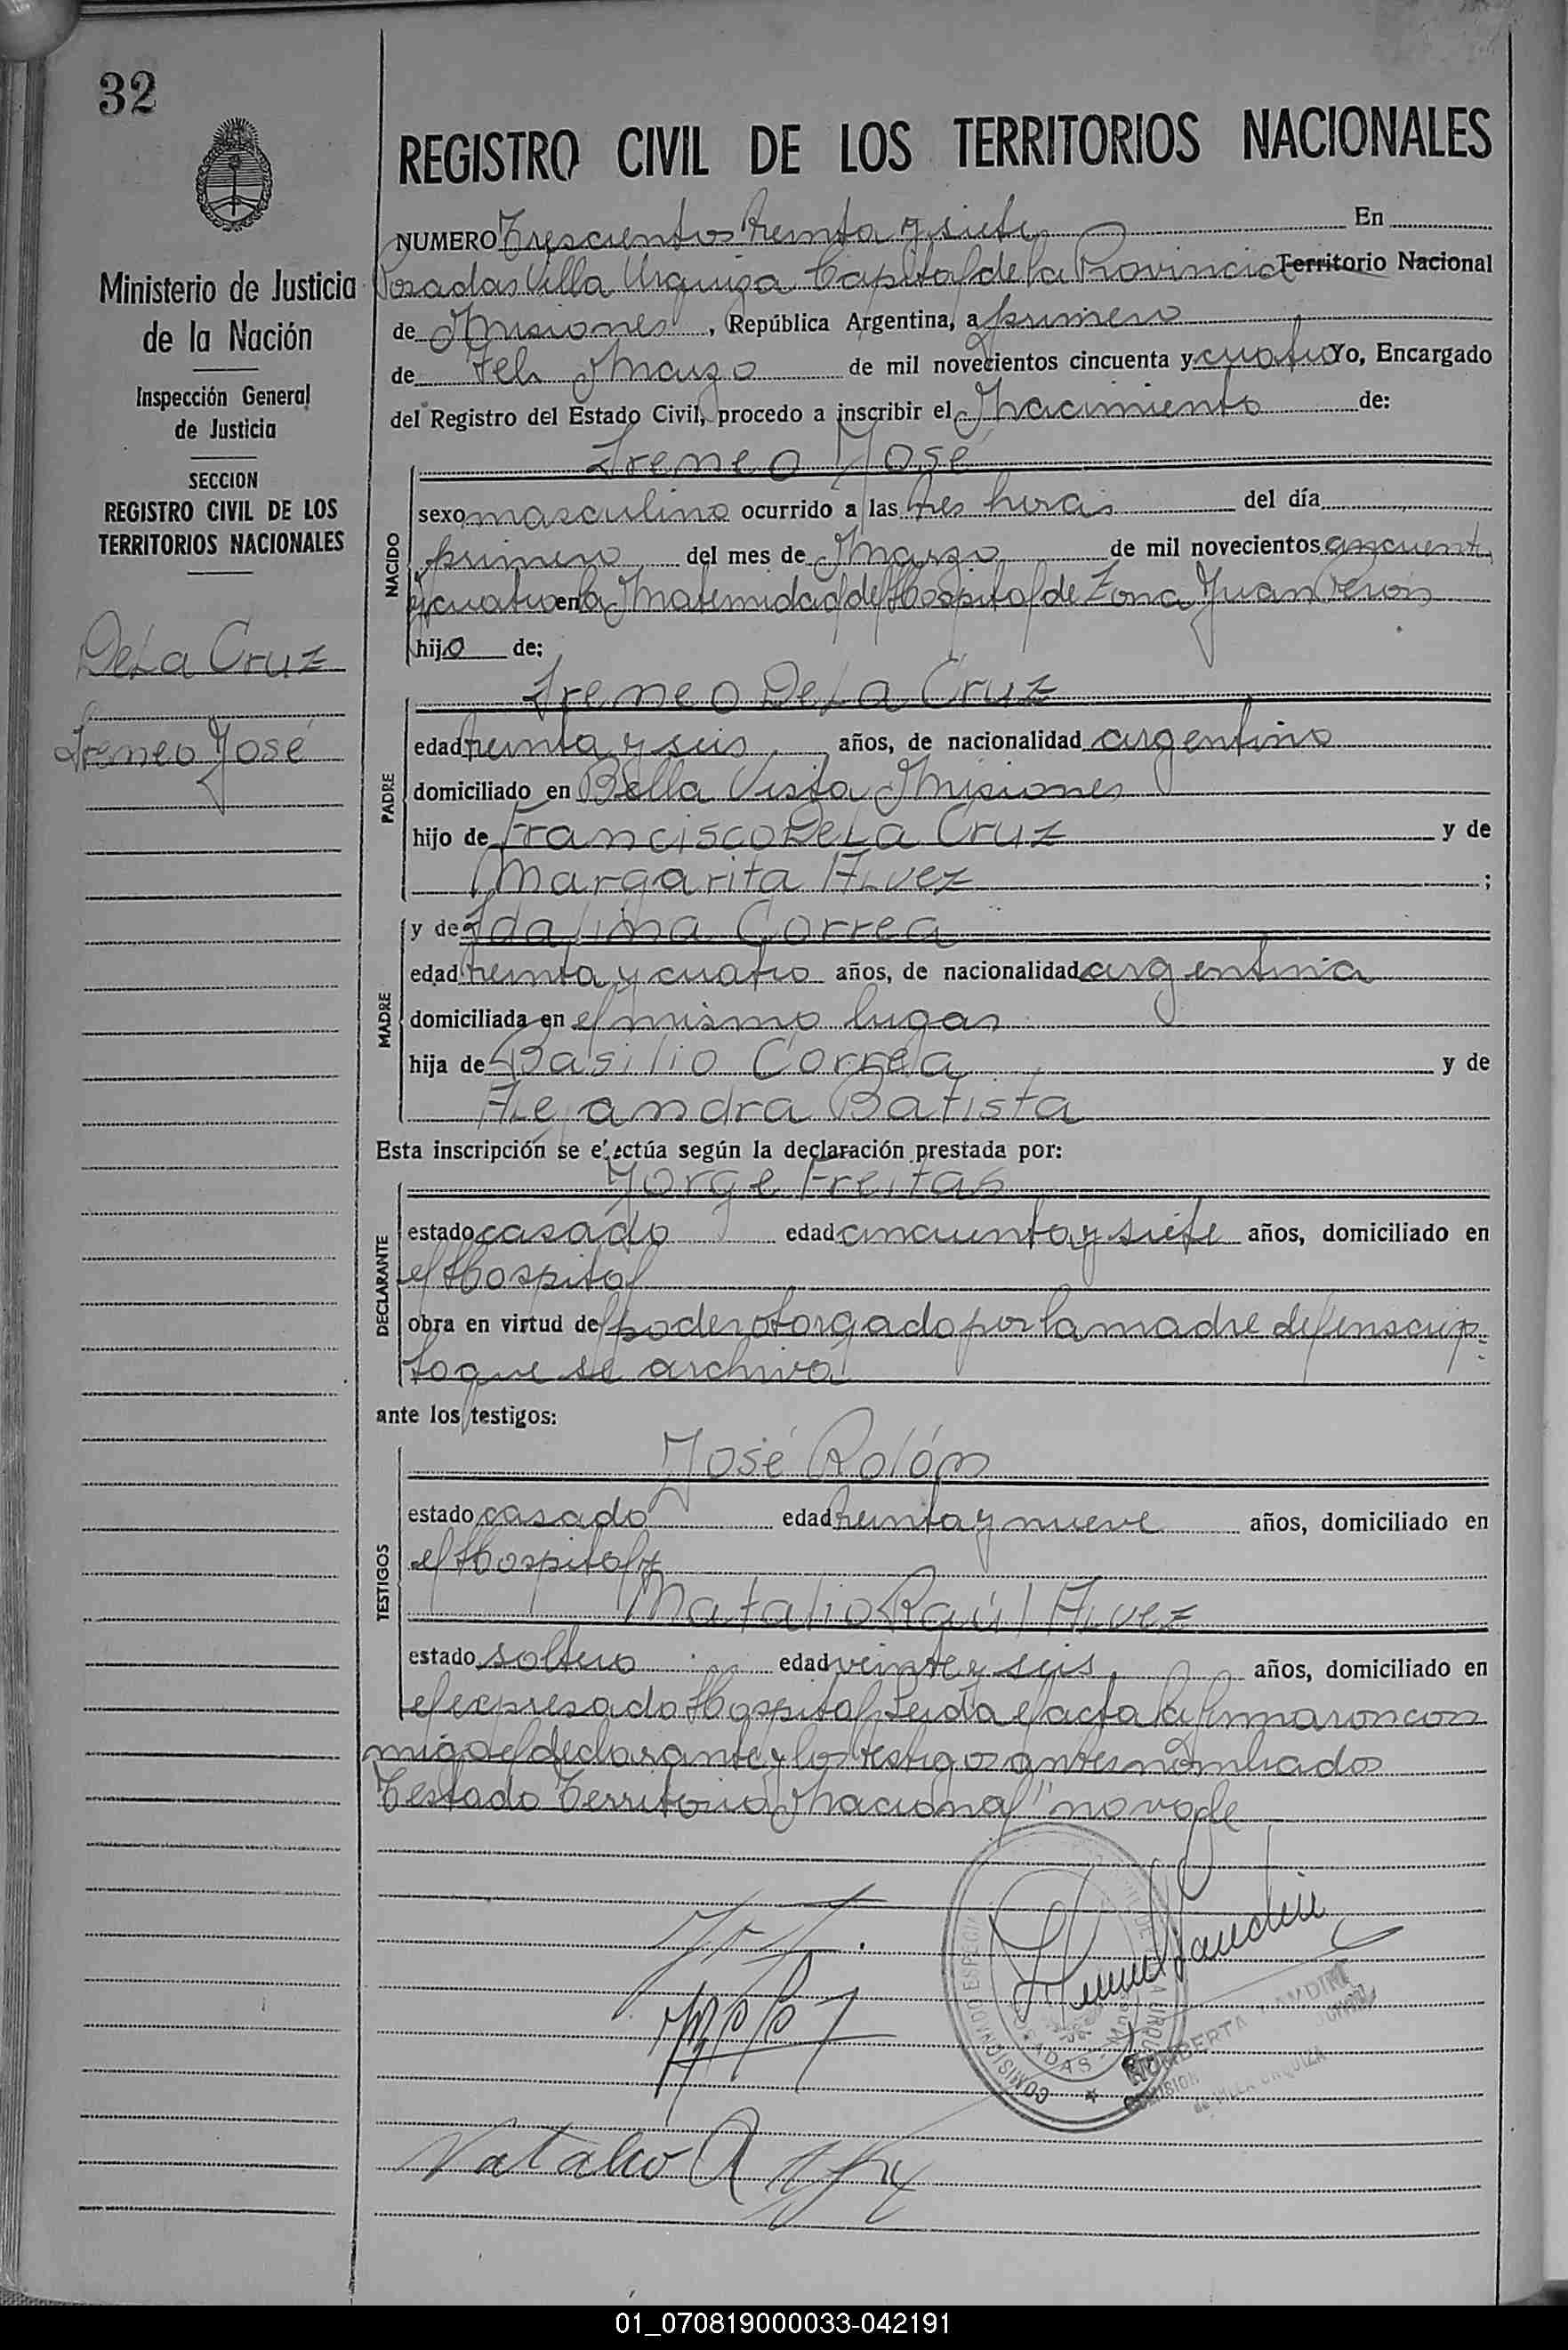 32
REGISTRO CIVIL DE LOS TERRITORIOS NACIONALES
Ministerio de Justicia
de la Nación
Inspección General
de Justicia
SECCION
REGISTRO CIVIL DE LOS
TERRITORIOS NACIONALES
De La Cruz
Ireneo José
NUMERO Trescientos treinta y siete En
Posadas Villa Urquiza Capital de la Provincia Territorio Nacional
de Misiones, República Argentina, a primero
de Feb Marzo de mil novecientos cincuenta y cuatro Yo, Encargado
del Registro del Estado Civil, procedo a inscribir el Nacimiento de:
NACIDO
Ireneo José
sexo masculino ocurrido a las tres horas del día
primero del mes de Marzo de mil novecientos cincuenta
y cuatro en la Maternidad del Hospital de Zona Juan Perón
hijo de:
PADRE
Ireneo De La Cruz
edad treinta y seis años, de nacionalidad argentino
domiciliado en Bella Vista Misiones
hijo de Francisco De La Cruz y de
Margarita Alvez ;
MADRE
y de Idalina Correa
edad treinta y cuatro años, de nacionalidad argentina
domiciliada en el mismo lugar
hija de Basilio Correa y de
Alejandra Batista
Esta inscripción se efectúa según la declaración prestada por:
DECLARANTE
Jorge Freitas
estado casado edad cincuenta y siete años, domiciliado en
el Hospital
obra en virtud del poder otorgado por la madre del inscrip-
to que se archiva
ante los testigos:
TESTIGOS
José Rolón
estado casado edad treinta y nueve años, domiciliado en
el Hospital y
Natalio Raúl Alvez
estado soltero edad veinte y seis años, domiciliado en
el expresado Hospital Leída el acta la firmaron con
migo el declarante y los testigos antes nombrados
Testado "Territorio Nacional" no vale
Natalio R
COMISIONADO ESPECIAL
POSADAS
VILLA URQUIZA
01_070819000033-042191